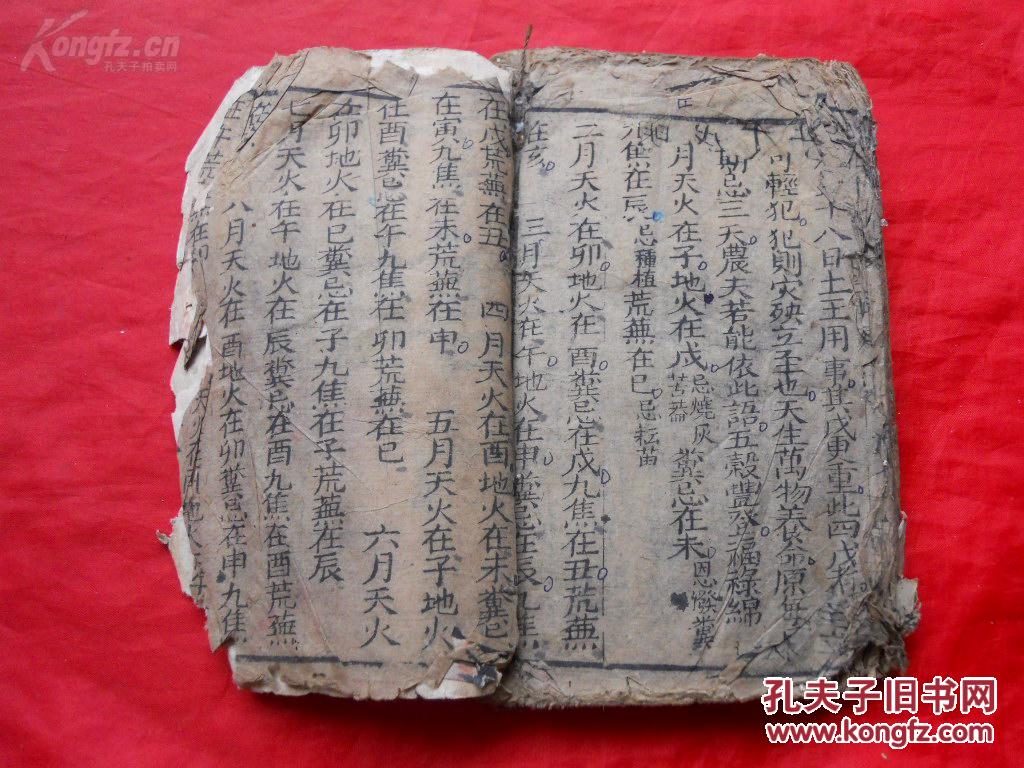 Kongfz.cn
孔夫子拍卖网
十八日土王用事其戊更重此四戊
可輕犯犯則灾殃立至也天生萬物養命原每
明忌三天農夫若能依此語五穀豐登福祿綿
月天火在子地火在戌忌燒灰苦蓋糞忌在未恩潑糞
九焦在辰忌種植荒蕪在巳忌耘苗
二月天火在卯地火在酉糞忌在戌九焦在丑荒蕪
在亥 三月天火在午地火在申糞忌在辰九焦
在戌荒蕪在丑 四月天火在酉地火在未糞忌
在寅九焦在未荒蕪在申 五月天火在子地火
在酉糞忌在午九焦在卯荒蕪在巳 六月天火
在卯地火在巳糞忌在子九焦在子荒蕪在辰
七月天火在午地火在辰糞忌在酉九焦在酉荒蕪
八月天火在酉地火在卯糞忌在申九焦
孔夫子旧书网
www.kongfz.com